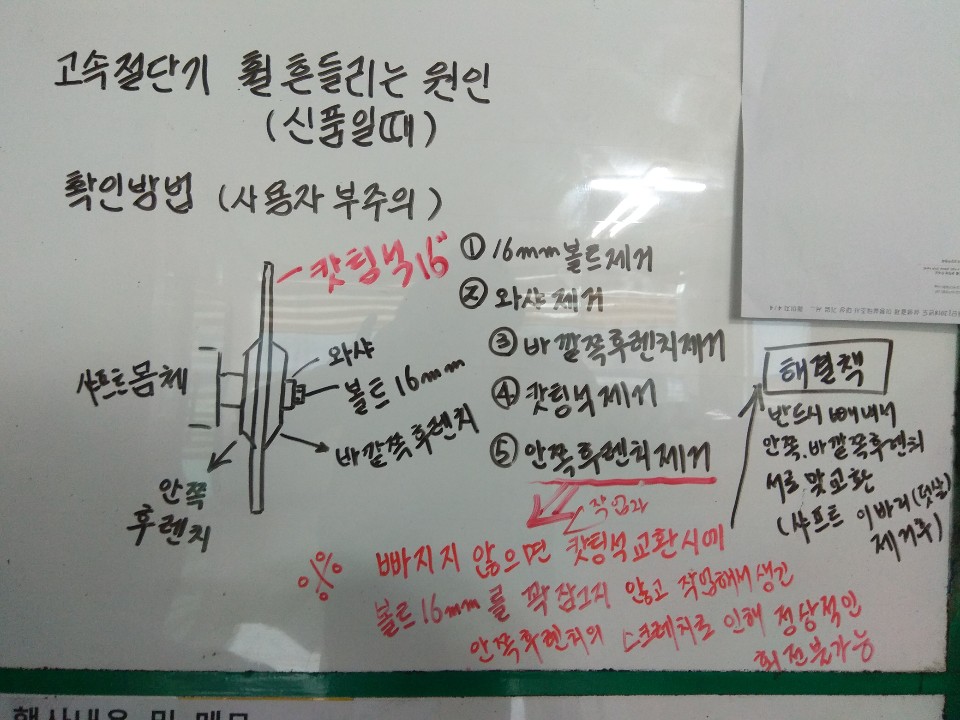 고속절단기 휠 흔들리는 원인
(신품일때)
확인방법 (사용자 부주의)
캇팅석 16"
① 16mm볼트제거
② 와샤 제거
③ 바깥쪽후렌치제거
④ 캇팅석 제거
⑤ 안쪽후렌치제거
와샤
볼트 16mm
바깥쪽후렌치
샤프트몸체
안쪽
후렌치
해결책
반드시 빼내서
안쪽.바깥쪽후렌치
서로 맞교환
(샤프트 이바리(덧살)
제거후)
작업자
※ 빠지지 않으면 캇팅석교환시에
볼트16mm를 꽉 잠그지 않고 작업해서 생긴
안쪽후렌치의 스크레치로 인해 정상적인
회전불가능
행사내용 및 메모